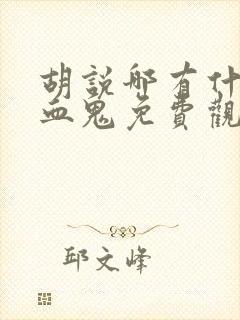 胡說哪有什
血鬼免費觀
邱文峰